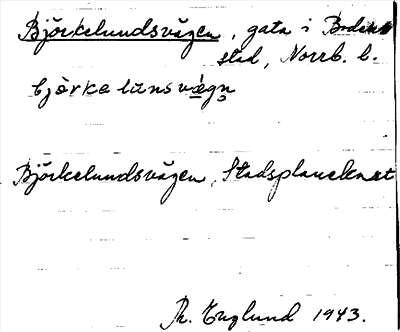 Björkelundsvägen, gata i Bodens
stad, Norrb. l.
bjö̀rkelunsvä́gn̥
Björkelundsvägen, Stadsplanekart
Th. Englund 1943.